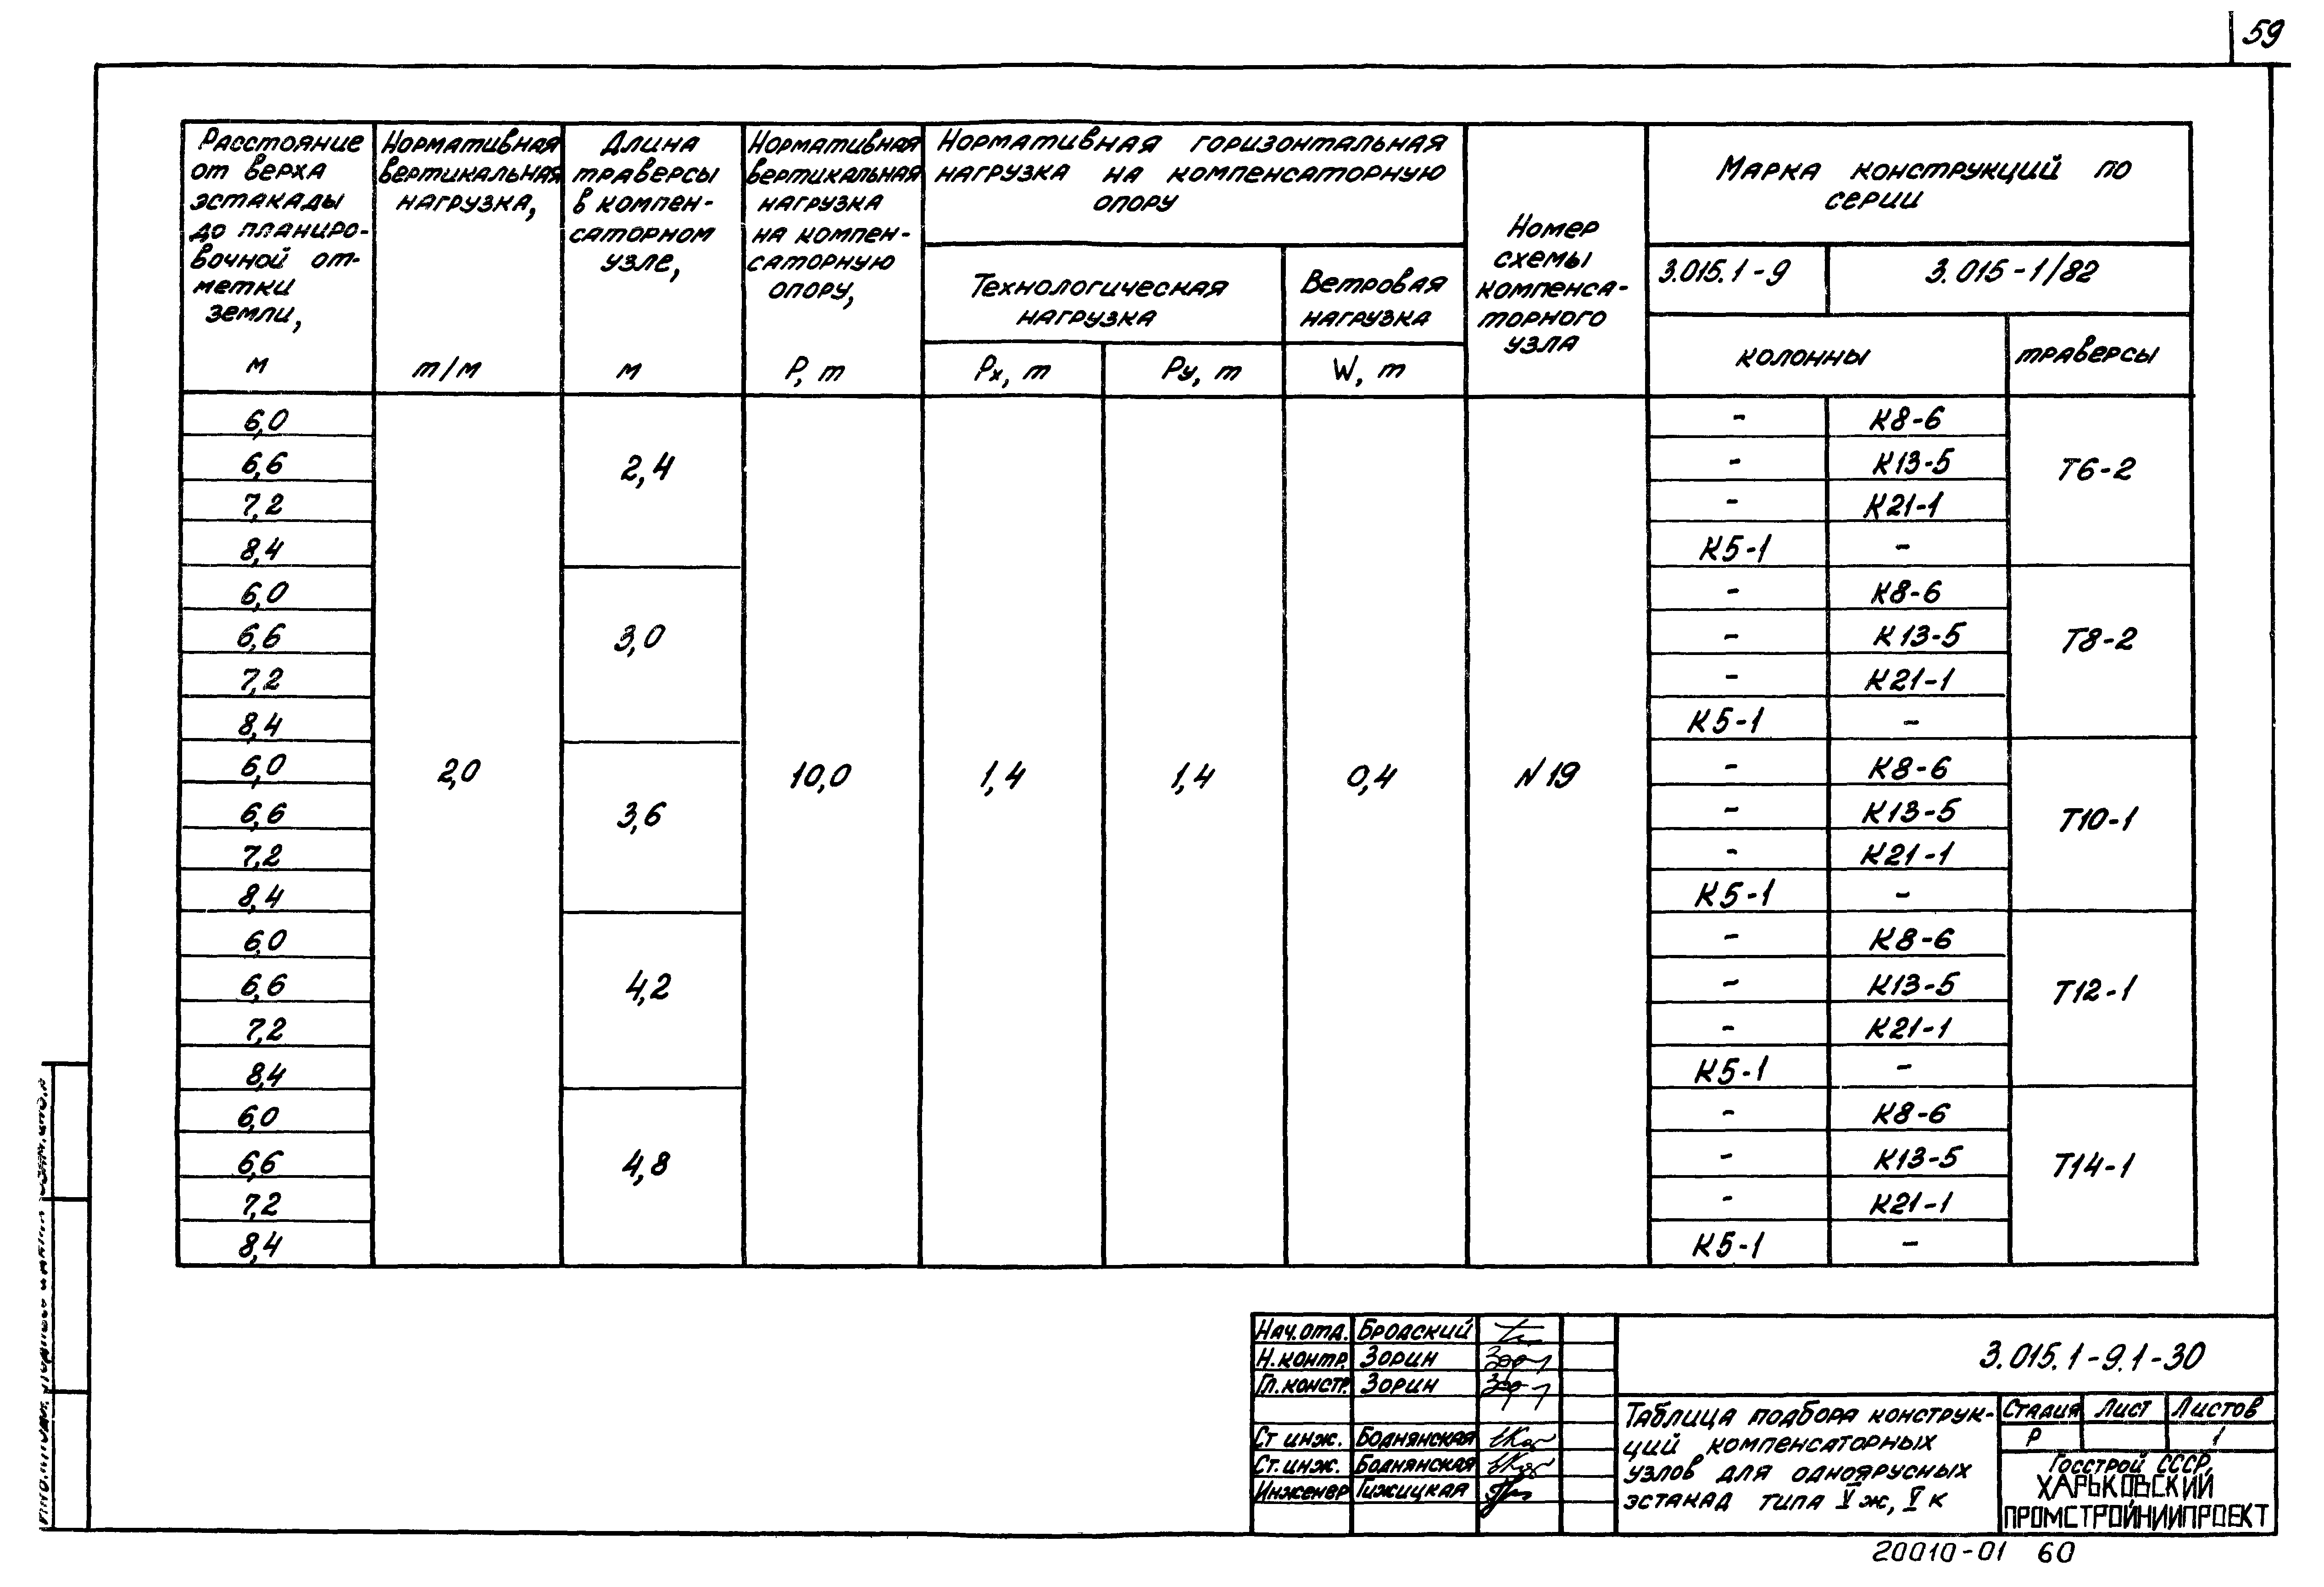 59
Расстояние
от верха
эстакады
до планиро-
вочной от-
метки
земли,
м
Нормативная
вертикальная
нагрузка,
т/м
Длина
траверсы
в компен-
саторном
узле,
м
Нормативная
вертикальная
нагрузка
на компен-
саторную
опору,
P, т
Нормативная горизонтальная
нагрузка на компенсаторную
опору
Технологическая
нагрузка
Pх, т
Pу, т
Ветровая
нагрузка
W, т
Номер
схемы
компенса-
торного
узла
Марка конструкций по
серии
3.015.1-9
3.015-1/82
колонны
траверсы
6,0 - К8-6
6,6 - К13-5
2,4 Т6-2
7,2 - К21-1
8,4 К5-1 -
6,0 - К8-6
6,6 - К13-5
3,0 Т8-2
7,2 - К21-1
8,4 К5-1 -
6,0 - К8-6
2,0 10,0 1,4 1,4 0,4 N19
6,6 - К13-5
3,6 Т10-1
7,2 - К21-1
8,4 К5-1 -
6,0 - К8-6
6,6 - К13-5
4,2 Т12-1
7,2 - К21-1
8,4 К5-1 -
6,0 - К8-6
6,6 - К13-5
4,8 Т14-1
7,2 - К21-1
8,4 К5-1 -
Нач.отд. Бродский
Н.контр. Зорин
Гл.констр. Зорин
Ст инж. Боднянская
Ст.инж. Боднянская
Инженер Гижицкая
3.015.1-9.1-30
Таблица подбора конструк-
ций компенсаторных
узлов для одноярусных
эстакад типа V ж, V к
Стадия Лист Листов
Р 1
Госстрой СССР,
ХАРЬКОВСКИЙ
ПРОМСТРОЙНИИПРОЕКТ
20010-01 60